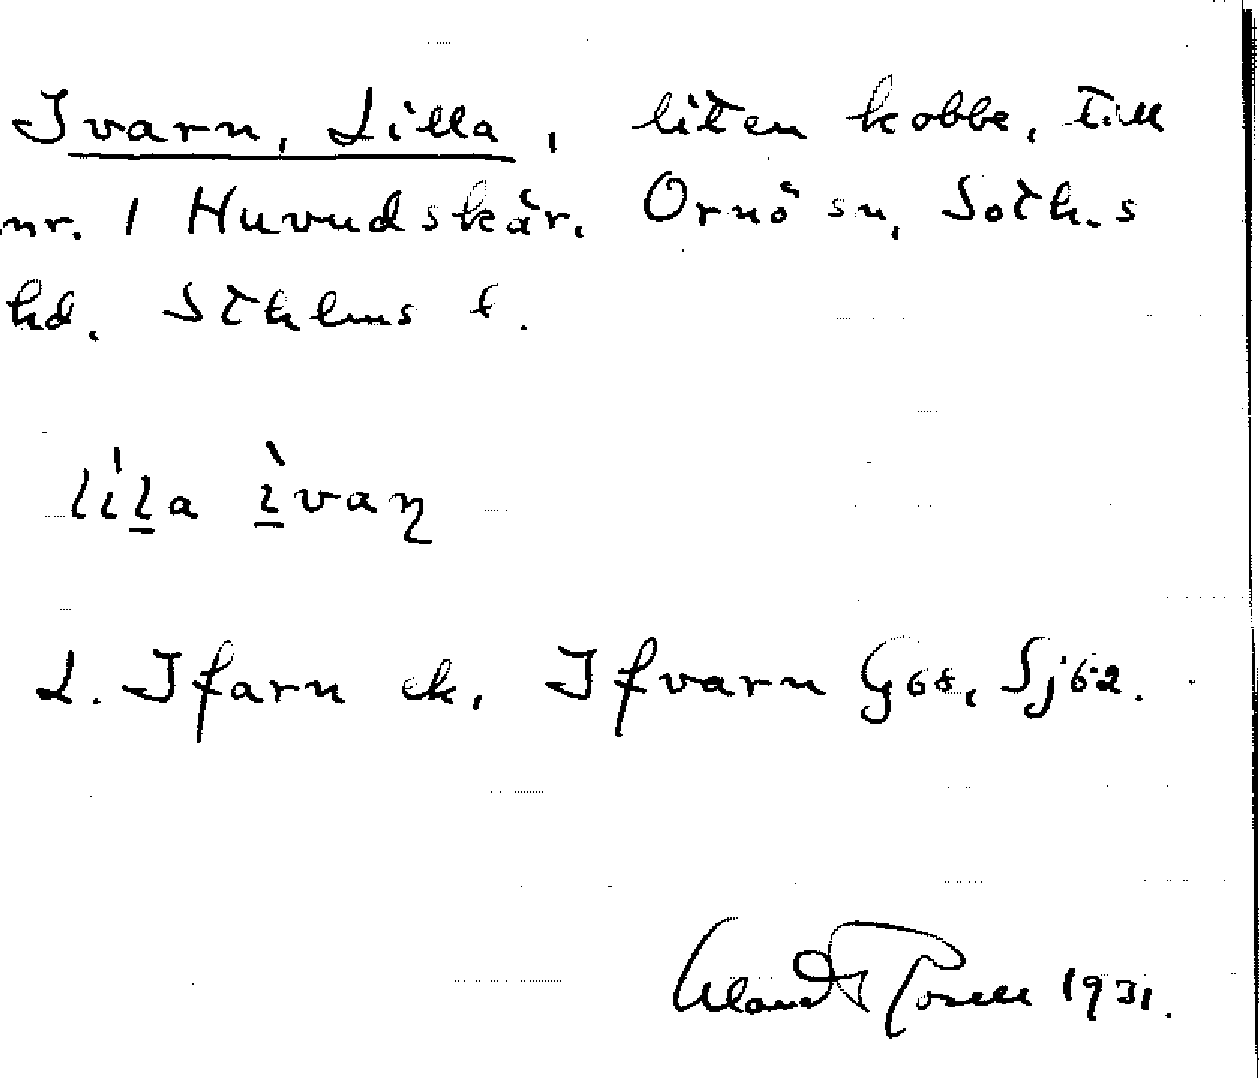 Ivarn, Lilla, liten kobbe, till
nr. 1 Huvudskär. Ornö sn, Soth.s
hd. Sthlms l.
lila ivaƞ
L. Ifarn ek, Ifvarn G68, Sj62.
1931.